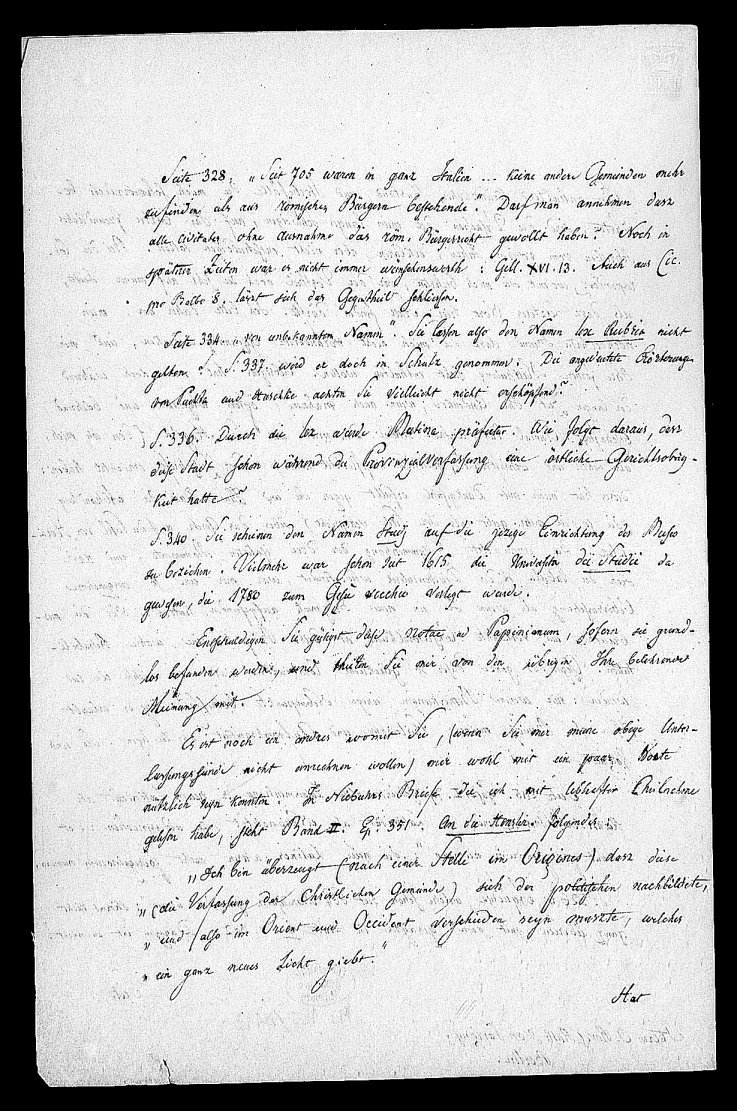 Seite 328. „Seit 705 waren in ganz Italien ... keine andere Gemeinden mehr
zu finden, als aus römischen Bürgern bestehende." Darf man annehmen dasz
alle civitates ohne Ausnahme das röm. Bürgerrecht gewollt haben? Noch in
spätern Zeiten war es nicht immer wünschenswerth: Gell. XVI. 13. Auch aus Cic.
pro Balbo 8. läszt sich das Gegentheil schlieszen.
Seite 334. „von unbekanntem Namen" Sie lassen also den Namen lex Rubria nicht
gelten? S. 337 wird er doch in Schutz genommen. Die angedeutete Erörterung
von Puchta und Huschke achten Sie vielleicht nicht erschöpfend?
S. 336. Durch die lex wurde Mutina präfectur. Wie folgt daraus, dasz
diese Stadt schon während der Provinzialverfassung eine örtliche Gerichtsobrig-
keit hatte?
S. 340. Sie scheinen den Namen Studj auf die jezige Einrichtung des Museo
zu beziehen. Vielmehr war schon seit 1615 die Universität dei Studii da
gewesen, die 1780 zum Gesù vecchio verlegt wurde.
Entschuldigen Sie gütigst diese notae ad Papinianum, sofern sie grund-
los befunden werden, und theilen Sie mir von den übrigen Ihre belehrende
Meinung mit.
Es ist noch ein andres womit Sie, (wenn Sie mir meine obige Unter-
lassungssünde nicht anrechnen wollen) mir wohl mit ein paar Worte
nützlich seyn könnten. In Niebuhrs Briefe die ich mit lebhafter Theilnahme
gelesen habe, steht Band II. Ep. 351. An die Hensler folgendes:
„Ich bin überzeugt (nach einer Stelle im Origines) dasz diese
„(die Verfassung der Christlichen Gemeinde) sich der politischen nachbildete,
„und (also im Orient und Occident verschieden seyn muszte, welches
„ein ganz neues Licht giebt."
Hat